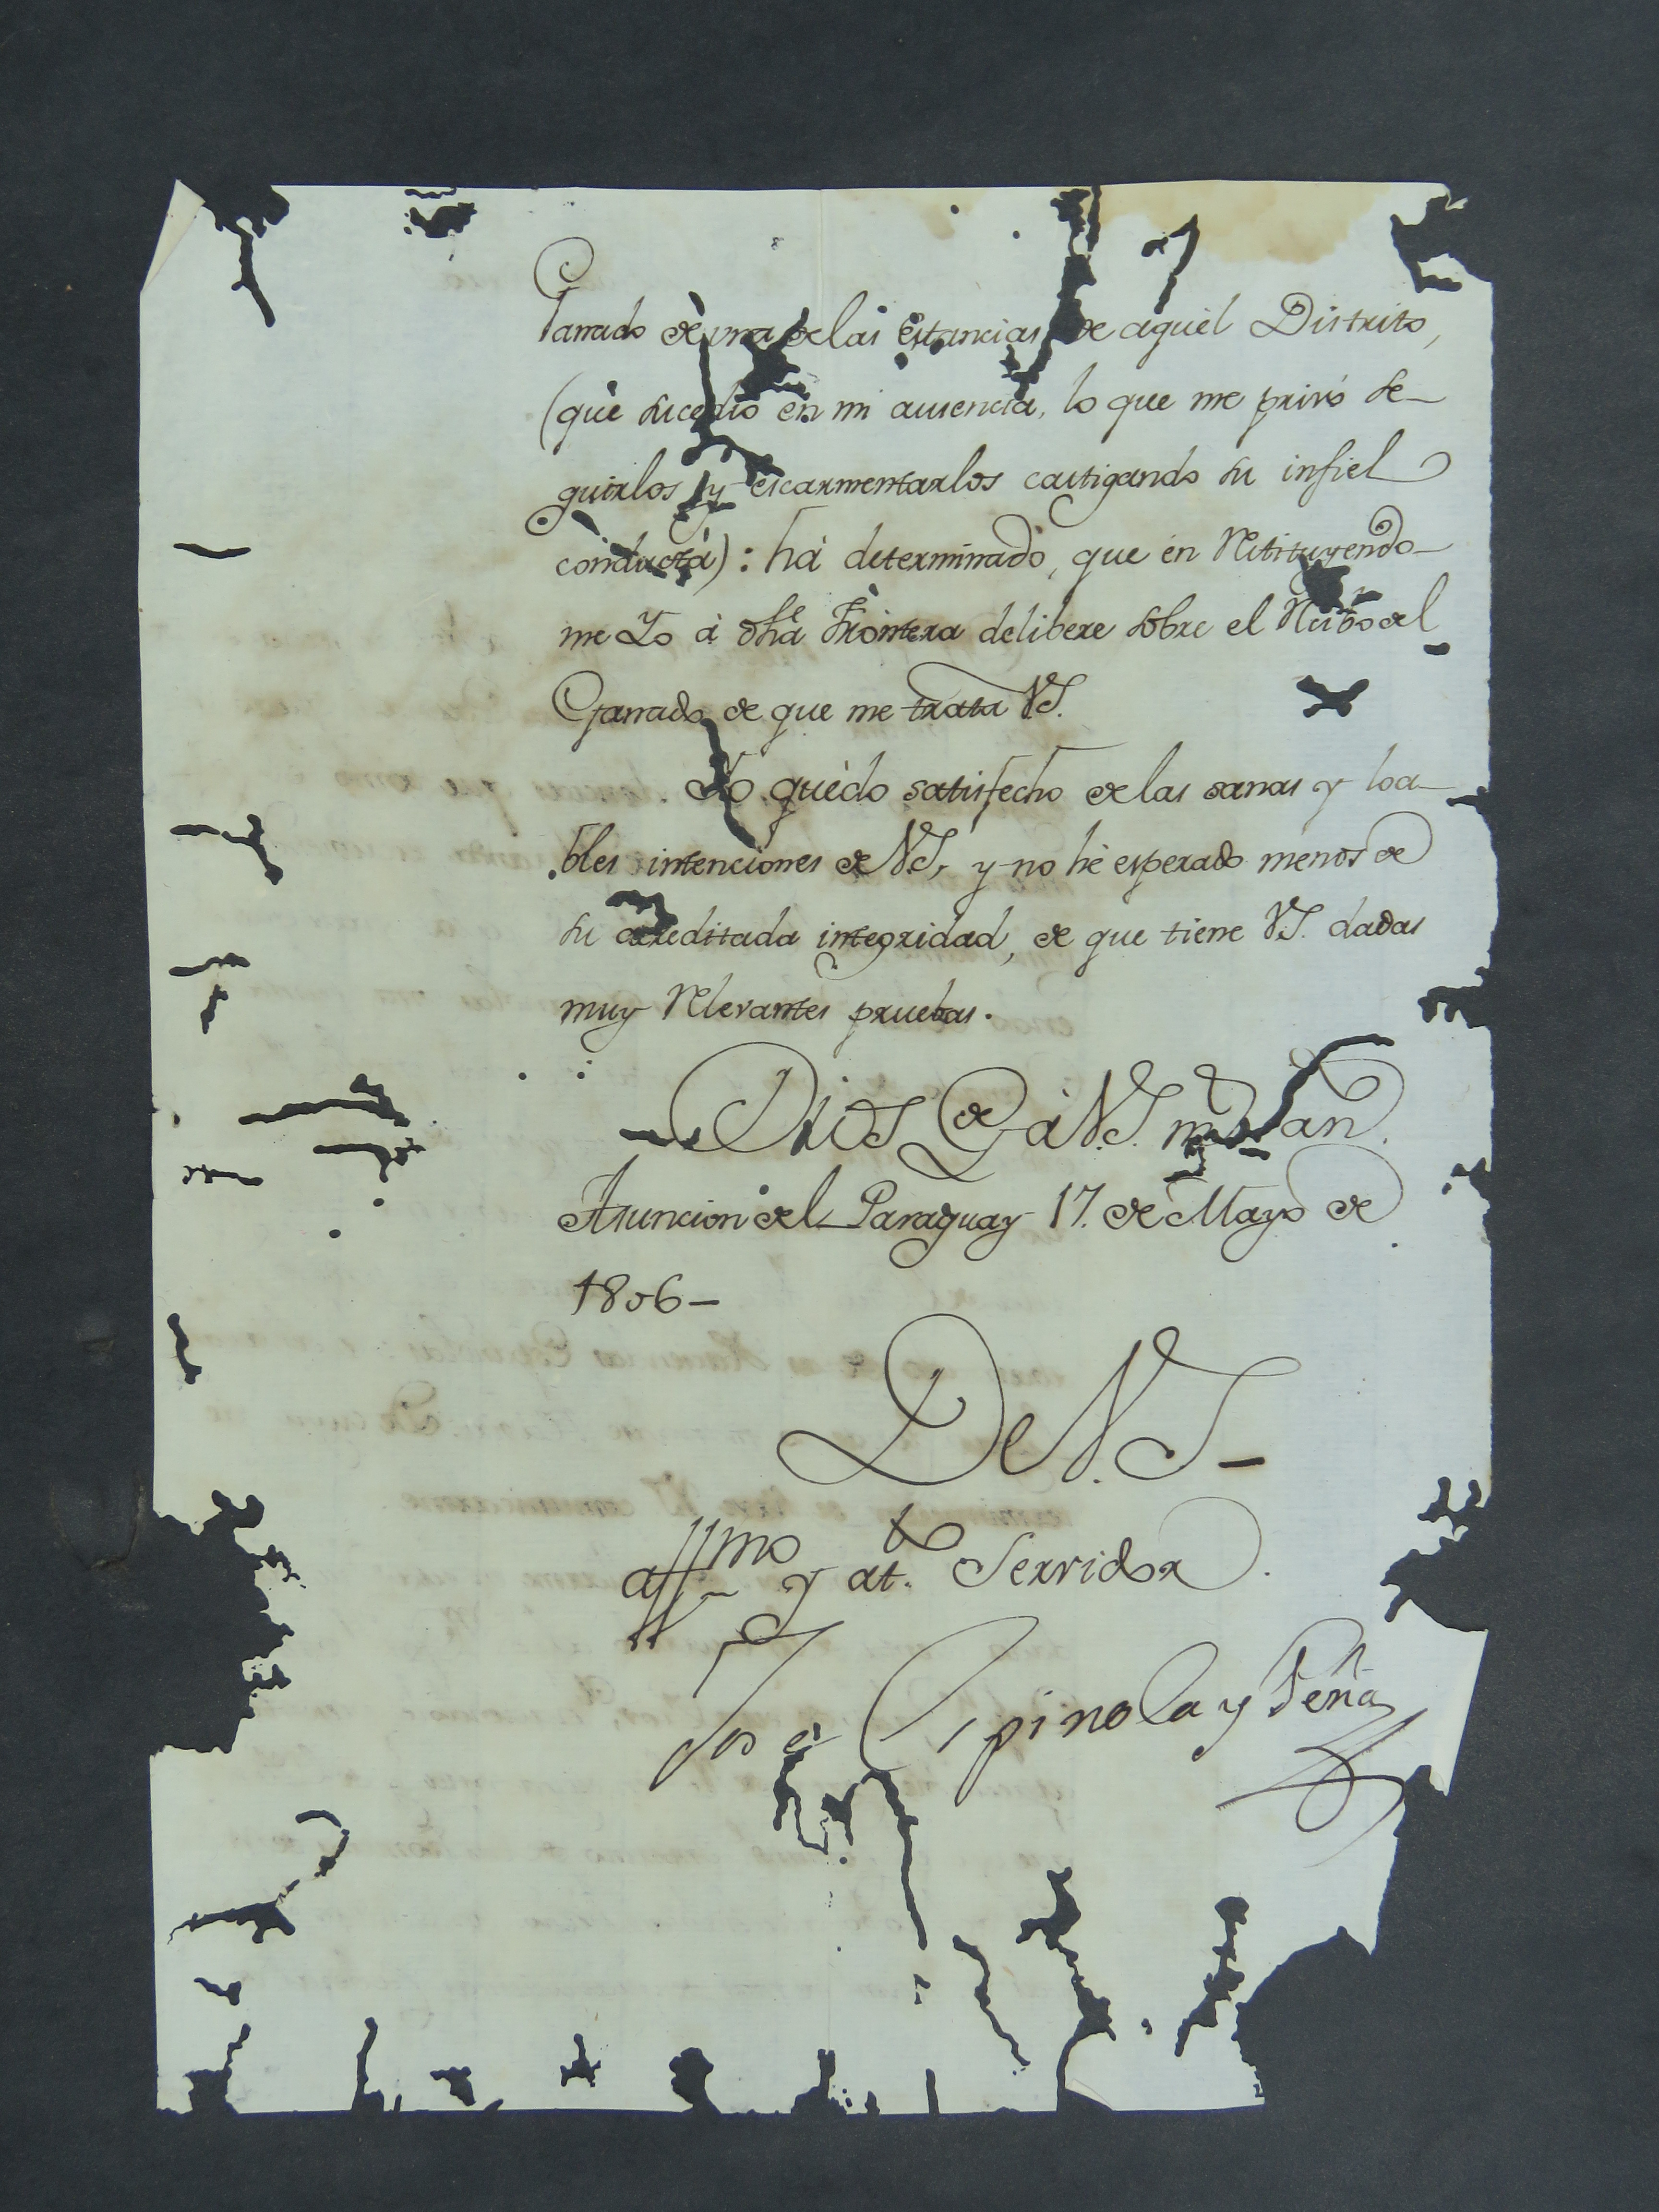 Ganado de una de las Estancias de aquel Distrito,
(que sucedio en mi ausencia, lo que me privó se-
guirlos y escarmentarlos castigando su infiel
conducta): há determinado, que en Restituyendo-
me Yo á dha Frontera delibere sobre el Recibo del
Ganado de que me trata VS.
Yo quedo satisfecho de las sanas y loa-
bles intenciones de VS, y no hé esperado menos de
su acreditada integridad, de que tiene VS. dadas
muy Relevantes pruebas.
Dios Gde á VS. ms an.
Asuncion del Paraguay 17. de Mayo de
1806-
De VS-
affmo y atto Servidor.
José Espinola y Peña